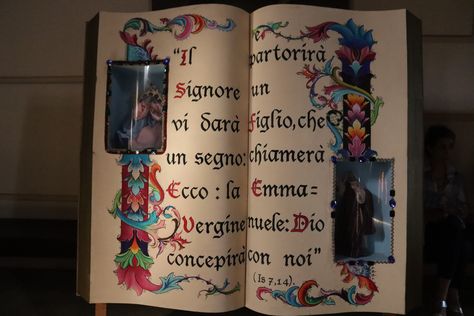 “Il
Signore
vi darà
un segno:
Ecco: la
Vergine
concepirà
e
partorirà
un
Figlio, che
chiamerà
Emma=
nuele: Dio
con noi”
(Is 7,14).